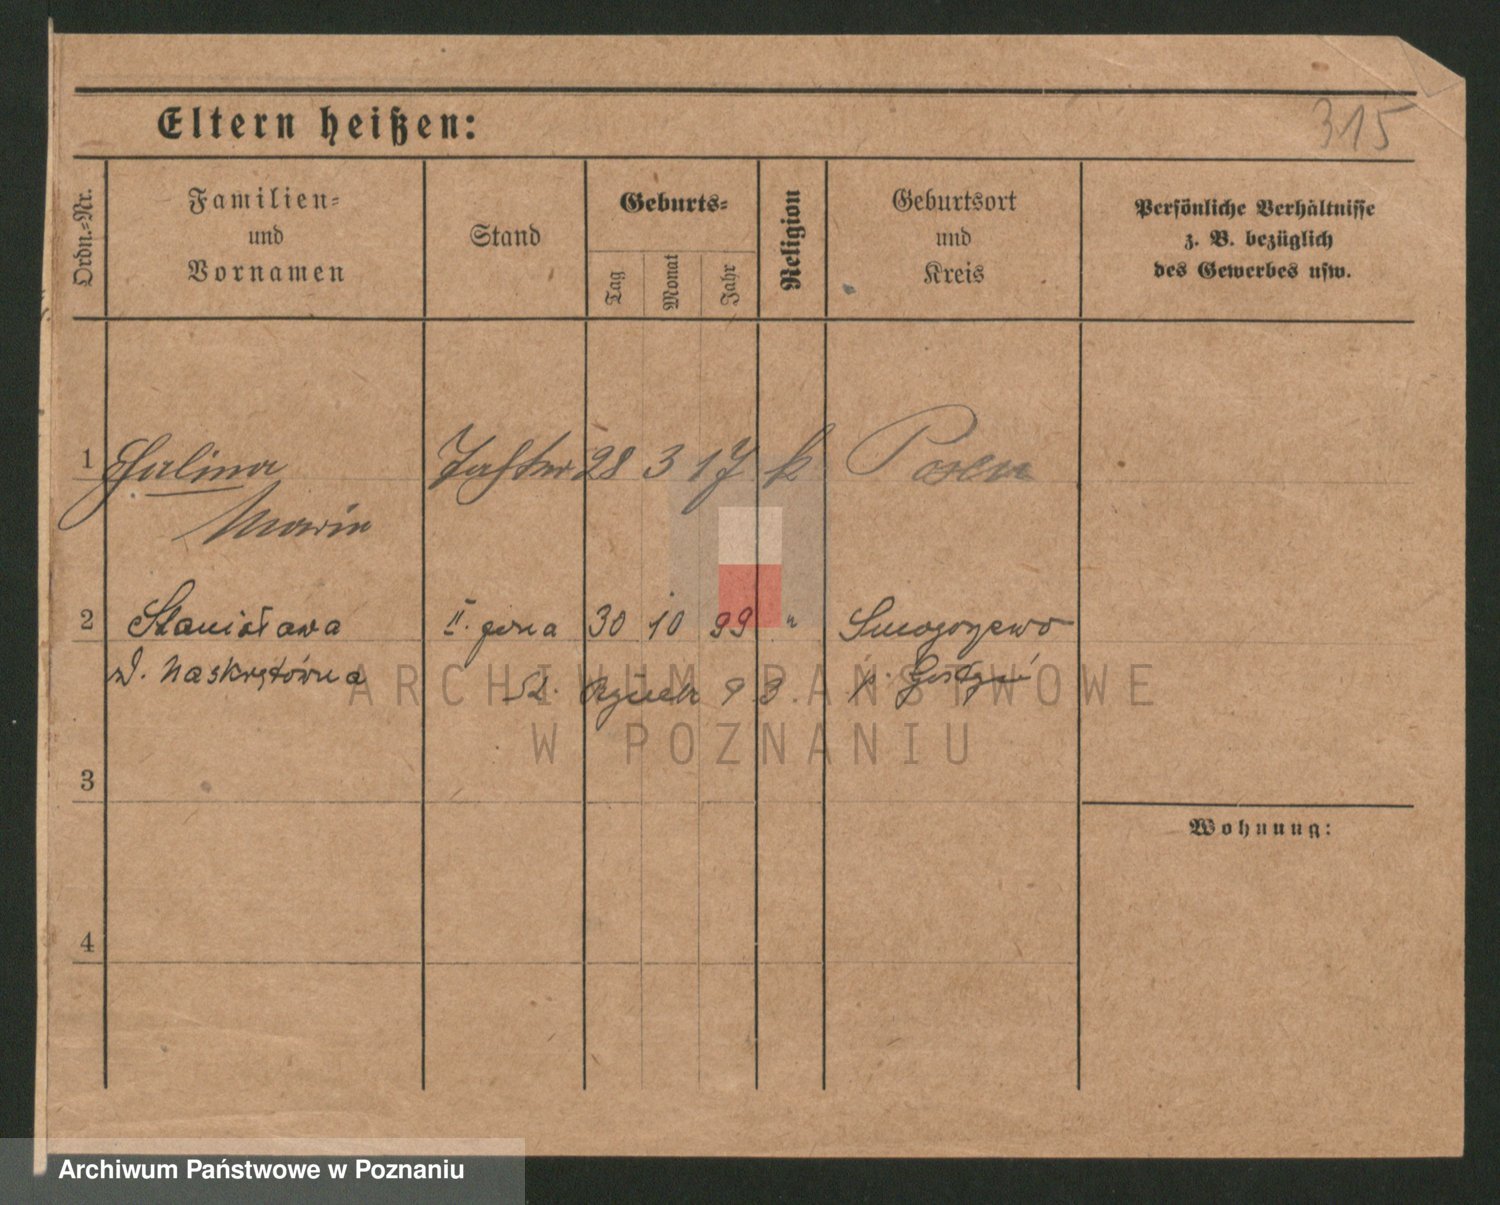 315
Eltern heißen:
Ordn.-Nr.
Familien-
und
Vornamen
Stand
Geburts-
Tag
Monat
Jahr
Religion
Geburtsort
und
Kreis
Persönliche Verhältnisse
z. B. bezüglich
des Gewerbes usw.
1 Halina Tochter 28 3 17 k Posen
Maria
2 Stanisława II. żona 30 10 99 " Smogorzewo
z d. Naskrętówna St. Rynek 93. p. Gostyń
3
4
Wohnung:
ARCHIWUM PAŃSTWOWE
W POZNANIU
Archiwum Państwowe w Poznaniu